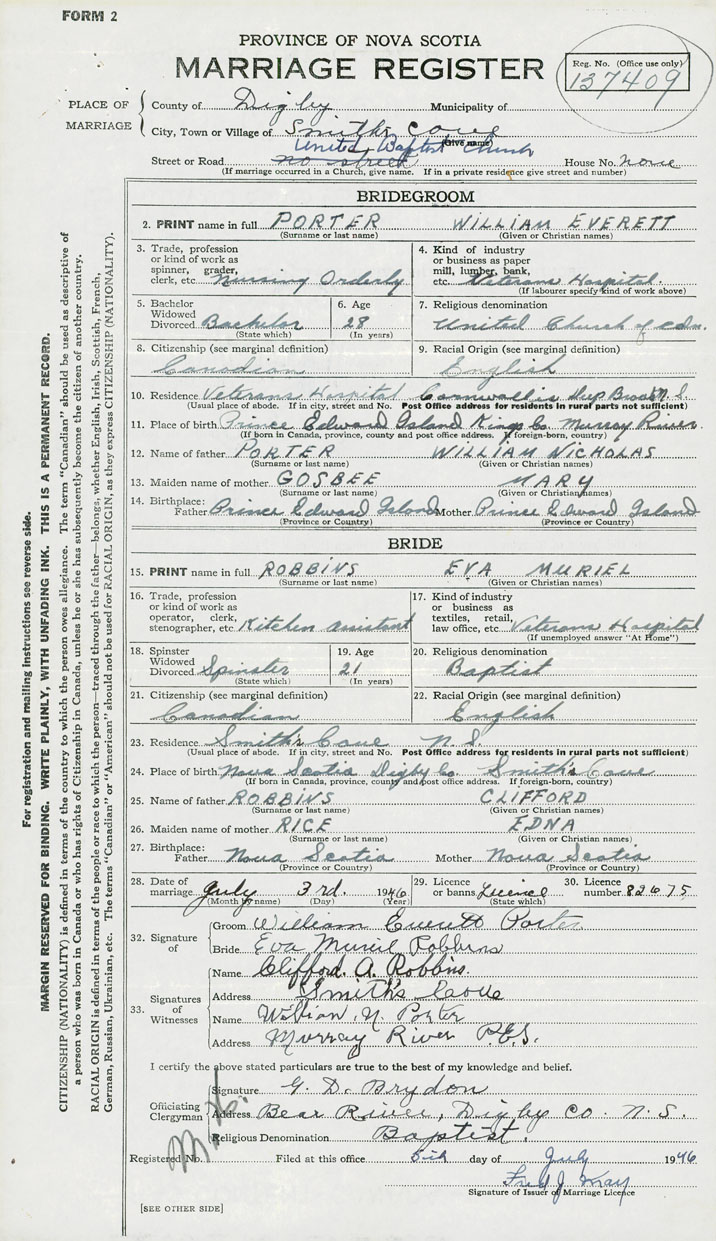 FORM 2
PROVINCE OF NOVA SCOTIA
MARRIAGE REGISTER
Reg. No. (Office use only)
137409
PLACE OF MARRIAGE
County of Digby Municipality of
City, Town or Village of Smith's Cove
United Baptist Church
(Give name)
Street or Road no street House No. none
(If marriage occurred in a Church, give name. If in a private residence give street and number)
BRIDEGROOM
2. PRINT name in full PORTER WILLIAM EVERETT
(Surname or last name) (Given or Christian names)
3. Trade, profession or kind of work as spinner, grader, clerk, etc. Nursing Orderly
4. Kind of industry or business as paper mill, lumber, bank, etc. Veterans Hospital.
(If labourer specify kind of work above)
5. Bachelor Widowed Divorced Bachelor
(State which)
6. Age 28
(In years)
7. Religious denomination
United Church of cdn.
8. Citizenship (see marginal definition)
Canadian
9. Racial Origin (see marginal definition)
English
10. Residence Veterans Hospital Cornwallis Deep Brook N.S.
(Usual place of abode. If in city, street and No. Post Office address for residents in rural parts not sufficient)
11. Place of birth Prince Edward Island Kings Co. Murray River.
(If born in Canada, province, county and post office address. If foreign-born, country)
12. Name of father PORTER WILLIAM NICHOLAS
(Surname or last name) (Given or Christian names)
13. Maiden name of mother GOSBEE MARY
(Surname or last name) (Given or Christian names)
14. Birthplace: Father Prince Edward Island Mother Prince Edward Island
(Province or Country) (Province or Country)
BRIDE
15. PRINT name in full ROBBINS EVA MURIEL
(Surname or last name) (Given or Christian names)
16. Trade, profession or kind of work as operator, clerk, stenographer, etc. Kitchen assistant
17. Kind of industry or business as textiles, retail, law office, etc. Veterans Hospital
(If unemployed answer "At Home")
18. Spinster Widowed Divorced Spinster
(State which)
19. Age 21
(In years)
20. Religious denomination
Baptist
21. Citizenship (see marginal definition)
Canadian
22. Racial Origin (see marginal definition)
English
23. Residence Smith's Cove N.S.
(Usual place of abode. If in city, street and No. Post Office address for residents in rural parts not sufficient)
24. Place of birth Nova Scotia Digby Co. Smith's Cove
(If born in Canada, province, county and post office address. If foreign-born, country)
25. Name of father ROBBINS CLIFFORD
(Surname or last name) (Given or Christian names)
26. Maiden name of mother RICE EDNA
(Surname or last name) (Given or Christian names)
27. Birthplace: Father Nova Scotia Mother Nova Scotia
(Province or Country) (Province or Country)
28. Date of marriage July 3rd. 1946
(Month by name) (Day) (Year)
29. Licence or banns Licence
(State which)
30. Licence number 82675
32. Signature of
Groom William Everett Porter
Bride Eva Muriel Robbins
33. Signatures of Witnesses
Name Clifford. A. Robbins.
Address Smith's Cove
Name William. N. Porter
Address Murray River P.E.I.
I certify the above stated particulars are true to the best of my knowledge and belief.
Officiating Clergyman
Signature G. D. Brydon
Address Bear River, Digby Co. N.S.
Religious Denomination Baptist.
Registered No. Filed at this office 5th day of July 1946
Fred J. May
Signature of Issuer of Marriage Licence
[SEE OTHER SIDE]
For registration and mailing instructions see reverse side.
MARGIN RESERVED FOR BINDING. WRITE PLAINLY, WITH UNFADING INK. THIS IS A PERMANENT RECORD.
CITIZENSHIP (NATIONALITY) is defined in terms of the country to which the person owes allegiance. The term "Canadian" should be used as descriptive of
a person who was born in Canada or who has rights of Citizenship in Canada, unless he or she has subsequently become the citizen of another country.
RACIAL ORIGIN is defined in terms of the people or race to which the person—traced through the father—belongs, whether English, Irish, Scottish, French,
German, Russian, Ukrainian, etc. The terms "Canadian" or "American" should not be used for RACIAL ORIGIN, as they express CITIZENSHIP (NATIONALITY).